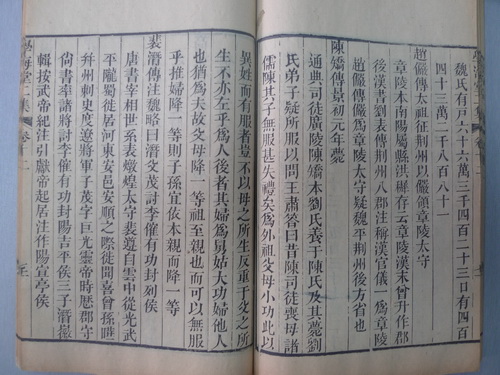 魏氏有戸六十六萬三千四百二十三口有四百
四十三萬二千八百八十一
趙儼傳太祖征荆州以儼領章陵太守
章陵本南陽屬縣洪縣存云章陵漢末曾升作郡
後漢書劉表傳荆州八郡注稱漢官儀一爲章陵
通典趙儼爲章陵太守疑魏平荆州後方省也
陳矯傳景初元年薨
通典司徒廣陵陳矯本劉氏養于陳氏及其薨劉
氏弟子疑所服以問王肅答曰昔陳司徒喪母諸
儒陳其子無服甚失禮矣爲外祖父母小功此以
異姓而有服者豈不以母之所生反重于父之所
生不亦左乎爲人後者其婦爲舅姑大功婦他人
也猶爲夫故父母降一等祖至親也而可以無服
乎推婦降一等則子孫宜依本親而降一等
裴潛傳注魏略曰潛父茂討李傕有功封列侯
唐書宰相世系表燉煌太守裴遵自雲中從光武
平隴蜀徙居河東安邑安順之際徙聞喜曾孫曄
幷州刺史度遼將軍子茂字巨光靈帝時歷郡守
尚書率諸將討李傕有功封陽吉平侯三子潛徽
輯按武帝紀注引獻帝起居注作陽宣亭侯
學海堂二集